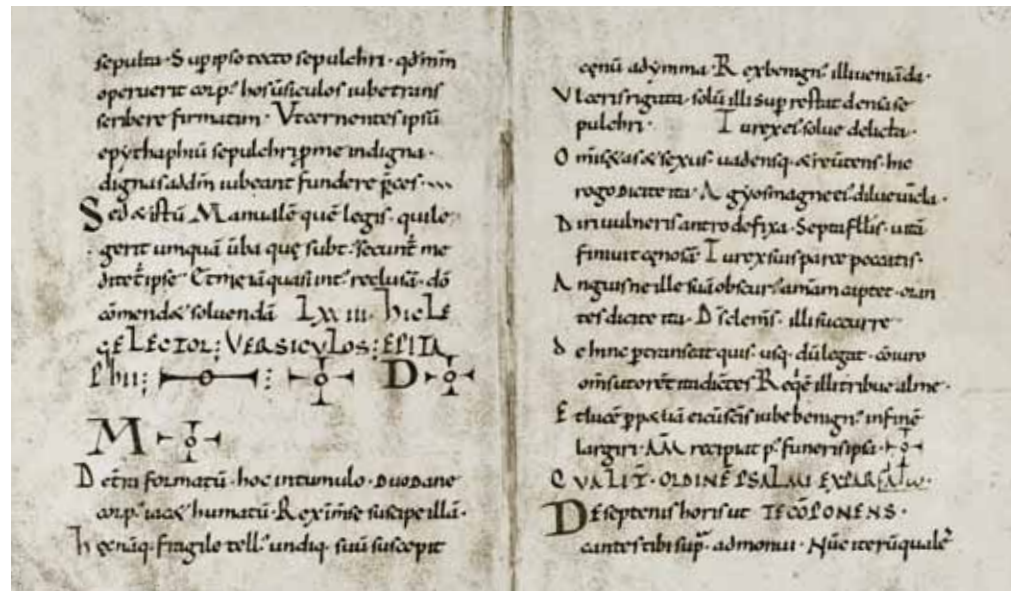 sepulta · Suꝑ ipso tecto sepulchri · qđ mm̄
operuerit corp' hos ūsiculos iube trans
scribere firmatim · Ut cernentes ipsū
epẏthaphiū sepulchri ꝑ me indigna ·
dignas ad dm̄ iubeant fundere p̄ces ·
Sed & istū Manualē quē legis · qui le
gerit umquā ūba quę subt' secunt̄ me
ditet̄ ipse Et me iā quasi int' reclusā · dō
cōmend& soluendā LXXIII · HIC LE
GE LECTOR ; VERSICULOS ; EPITA
PHII ; D
M
De trā formatū · hoc in tumulo · Duodane
corp' iac& humatū · Rex īm̄se suscipe illā ·
Hęc nāq · fragile tell' undiq · suū suscepit
cęnū ad ẏmma · Rex benign' illi ueniā da ·
Ulceris rigata · solū illi suꝑ restat densa se
pulchri · Tu rex ei' solue delicta ·
Om̄is &as & sexus · uadensq · & reūtens · hic
rogo Dicite ita · Agẏos magne ei' dilue uīcla ·
Diri uulneris antro defixa · Septa fellis · uitā
finiuit cęnosā · Tu rex suis parce peccatis ·
Anguis ne ille suā obscur' amam captet · oran
tes dicite ita · Ds clem̄s · illi succurre
De hinc ꝑtranseat quis · usq · dū legat · cōiuro
om̄s ut oret ita dictes Reqē illi tribue alme ·
Et lucē ꝑp&uā ei cū scīs iube benign' in finē
largiri · AM̄ recipiat p' funeris ipsa ·
QUALIT̄ · ORDINĒ PSALMI EX PAR
De septenis horis ut TE CŌPONENS ·
cantes tibi sup̄ · admonui · Nūc iterū qualē